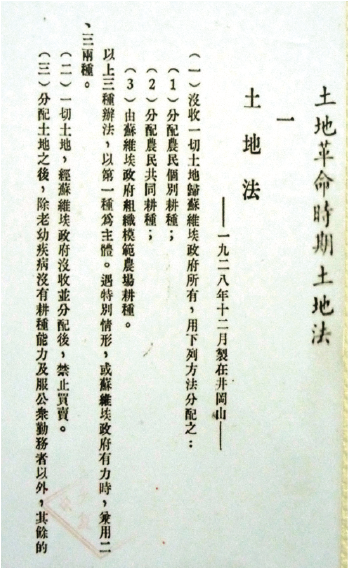 土地革命時期土地法
一
土地法
——一九二八年十二月製在井岡山——
（一）沒收一切土地歸蘇維埃政府所有，用下列方法分配之：
（1）分配農民個別耕種；
（2）分配農民共同耕種；
（3）由蘇維埃政府組織模範農場耕種。
以上三種辦法，以第一種爲主體。遇特別情形，或蘇維埃政府有力時，兼用二
、三兩種。
（二）一切土地，經蘇維埃政府沒收並分配後，禁止買賣。
（三）分配土地之後，除老幼疾病沒有耕種能力及服公衆勤務者以外，其餘的